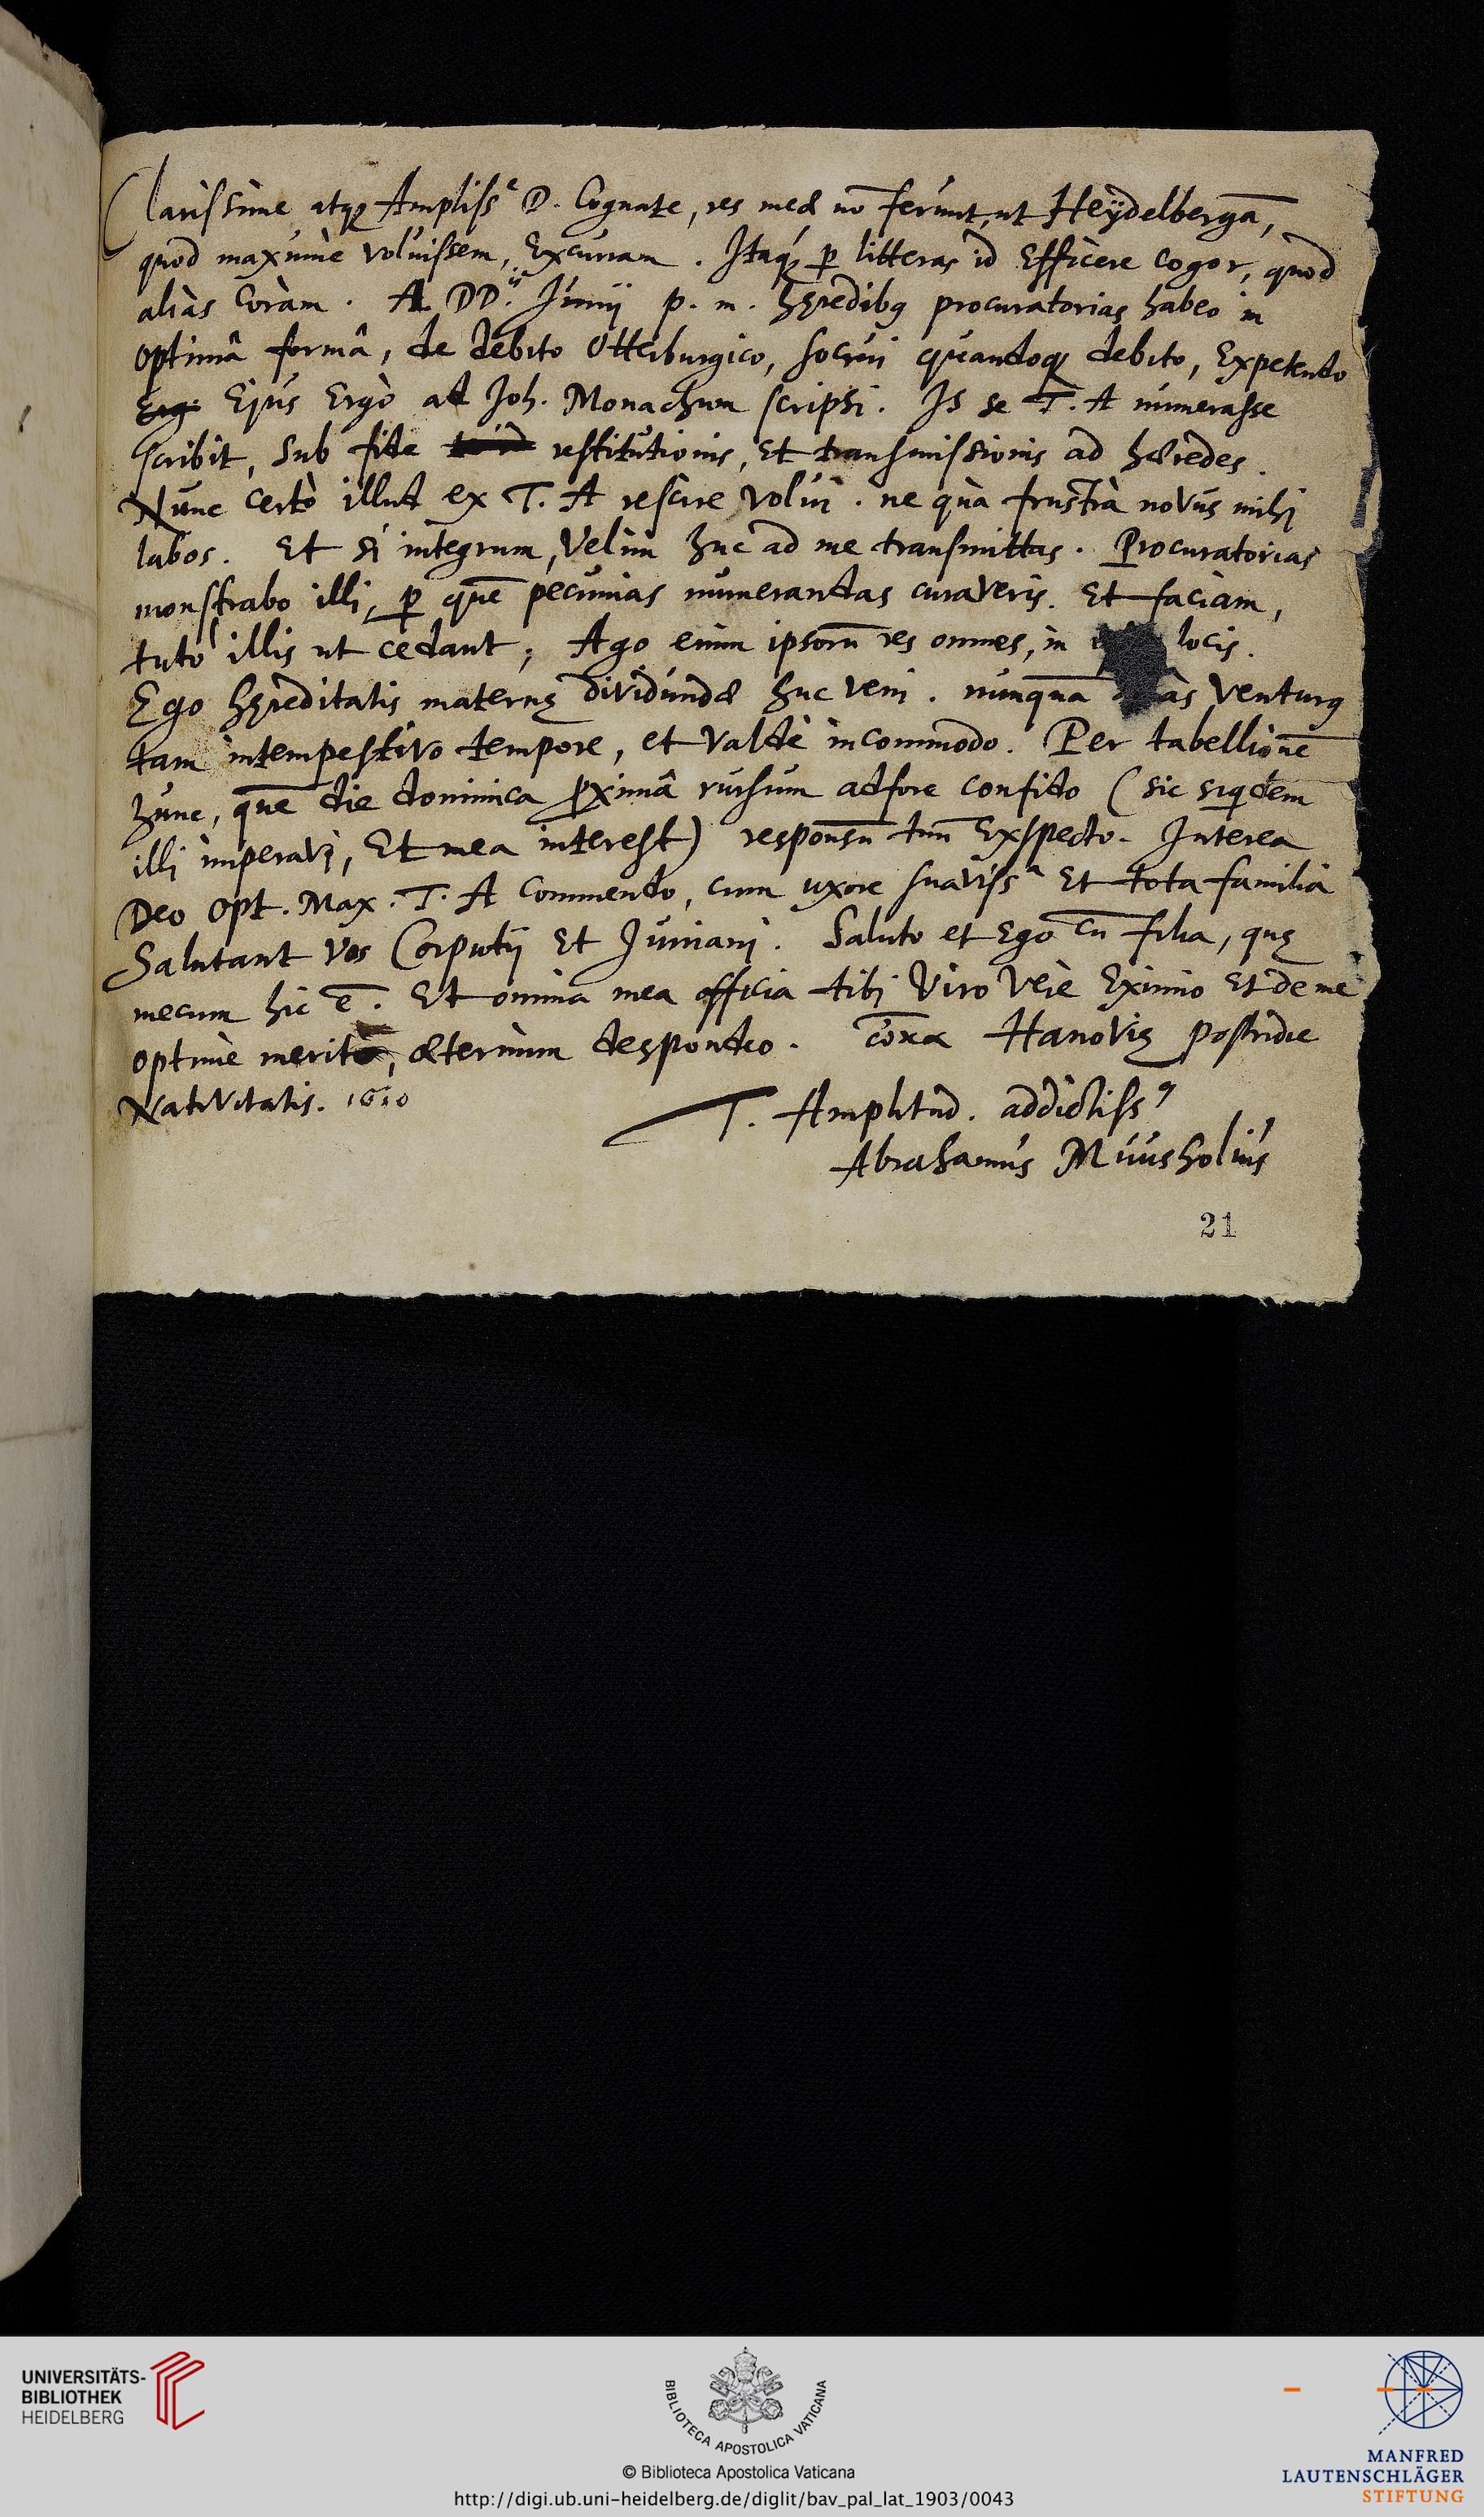 Clarissime atq; Ampliss^e D. Cognate, res meæ nō ferunt, ut Heÿdelbergā,
quod maxumè voluissem, Excurram. Itaq; p litteras id Efficere cogor, quod
aliàs Coràm. A DD.^is Junij p. m. hęredibꝯ procuratorias habeo in
optimâ formâ, de debito Otterburgico, socrui quandoq; debito, Expetendo
Ejus Ergò ad Joh. Monachum scripsi. Is se T. A numerasse
scribit, sub fide restitutionis, Et transmissionis ad hæredes.
Nunc certò illud ex T. A rescire volui. ne quà frustrà novus mihi
labos. Et si integrum, Velim huc ad me transmittas. Procuratorias
monstrabo illi, p quē pecunias numerandas curaveris. Et faciam,
tutò illis ut cedant; Ago enim ipsorū res omnes, in locis.
Ego hęreditatis maternę dividundæ huc veni. nunquā venturꝯ
tam intempestivo tempore, et valdè incommodo. Per tabellionē
hunc, quē die dominica proximâ rursum adfore confido (sic siqdem
illi imperavi, Et mea interest) responsū tuū Exspecto. Interea
Deo Opt. Max. T. A Commendo, cum uxore suaviss^a Et tota familia
Salutant vos Corputij Et Juniani. Saluto et Ego cū filia, quę
mecum hic ē. Et omnia mea officia tibi Viro verè Eximio Et de me
optimè merito, æternùm despondeo. Hanovię postridie
Nativitatis. 1610
T. Amplitud. addictissꝯ
Abrahamus Muusholius
21
UNIVERSITÄTS-
BIBLIOTHEK
HEIDELBERG
BIBLIOTECA APOSTOLICA VATICANA
© Biblioteca Apostolica Vaticana
http://digi.ub.uni-heidelberg.de/diglit/bav_pal_lat_1903/0043
MANFRED
LAUTENSCHLÄGER
STIFTUNG